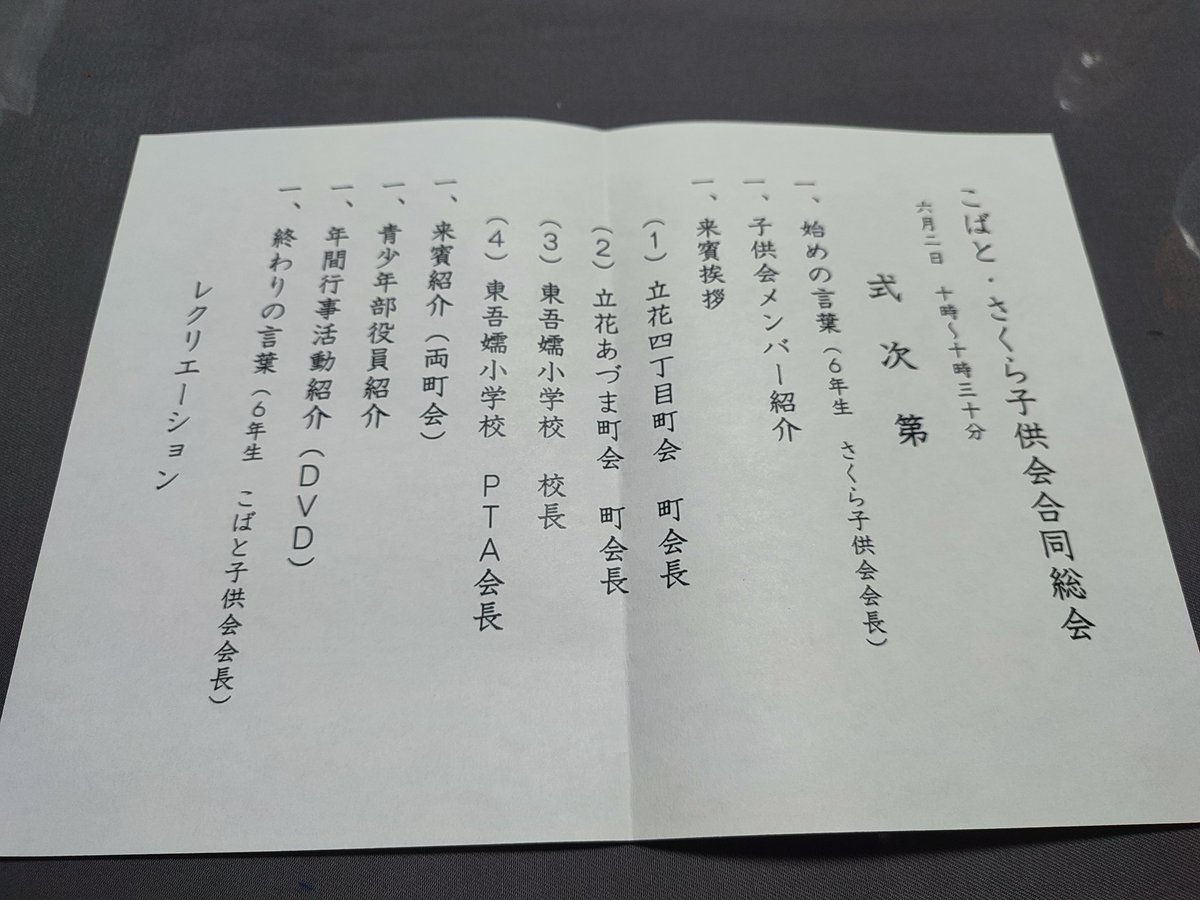 こばと・さくら子供会合同総会
六月二日 十時～十時三十分
式次第
一、始めの言葉（6年生 さくら子供会会長）
一、子供会メンバー紹介
一、来賓挨拶
（1）立花四丁目町会 町会長
（2）立花あづま町会 町会長
（3）東吾嬬小学校 校長
（4）東吾嬬小学校 PTA会長
一、来賓紹介（両町会）
一、青少年部役員紹介
一、年間行事活動紹介（DVD）
一、終わりの言葉（6年生 こばと子供会会長）
レクリエーション